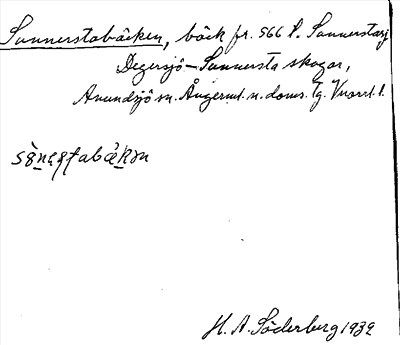 Sunnerstabäcken, bäck fr. 566 t. Sunnerstasj
Degersjö-Sunnersta skogar,
Anundsjö sn. Ångerml. n. doms. tg. Vnorrl. l.
H. A. Söderberg 1932